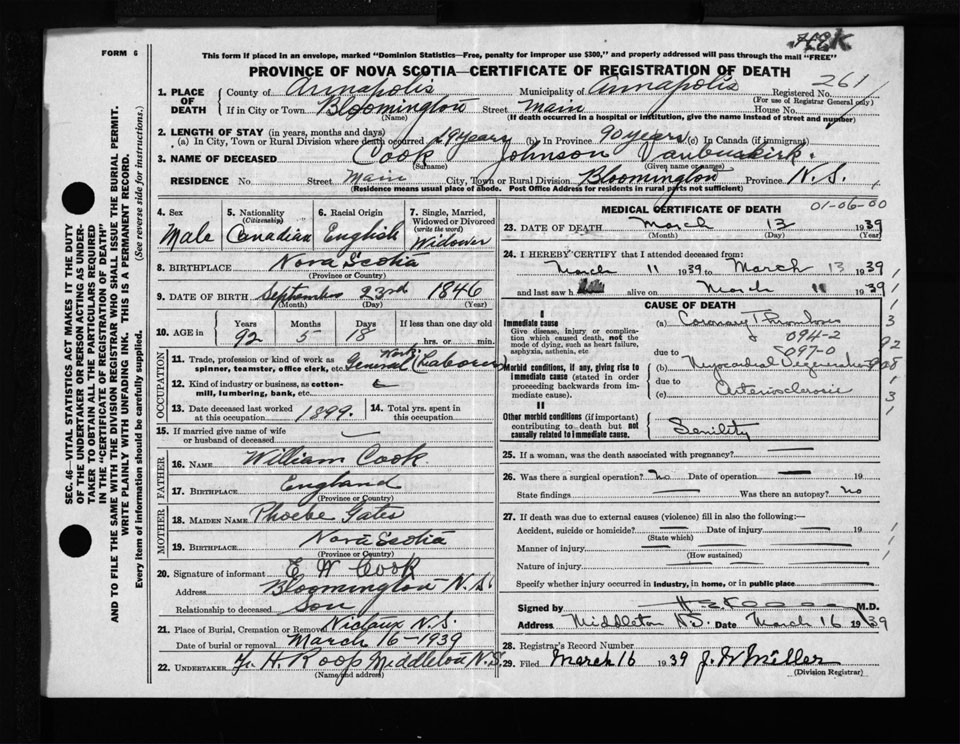 HEK
FORM 6
This form if placed in an envelope, marked "Dominion Statistics—Free, penalty for improper use $300," and properly addressed will pass through the mail "FREE"
PROVINCE OF NOVA SCOTIA—CERTIFICATE OF REGISTRATION OF DEATH
SEC. 46 – VITAL STATISTICS ACT MAKES IT THE DUTY
OF THE UNDERTAKER OR PERSON ACTING AS UNDER-
TAKER TO OBTAIN ALL THE PARTICULARS REQUIRED
IN THE "CERTIFICATE OF REGISTRATION OF DEATH"
AND TO FILE THE SAME WITH THE DIVISION REGISTRAR WHO SHALL ISSUE THE BURIAL PERMIT.
WRITE PLAINLY WITH UNFADING INK. THIS IS A PERMANENT RECORD.
Every item of information should be carefully supplied. (See reverse side for instructions.)
1. PLACE OF DEATH County of Annapolis Municipality of Annapolis Registered No. 261
(For use of Registrar General only)
If in City or Town Bloomington Street Main House No.
(Name) (If death occurred in a hospital or institution, give the name instead of street and number)
2. LENGTH OF STAY (in years, months and days)
(a) In City, Town or Rural Division where death occurred 29 years (b) In Province 90 years (c) In Canada (if immigrant)
3. NAME OF DECEASED Cook Johnson Vanbuskirk.
(Surname) (Given name or names)
RESIDENCE No. Street Main City, Town or Rural Division Bloomington Province N.S.
(Residence means usual place of abode. Post Office Address for residents in rural parts not sufficient)
4. Sex Male
5. Nationality (Citizenship) Canadian
6. Racial Origin English
7. Single, Married, Widowed or Divorced (write the word) Widower
8. BIRTHPLACE Nova Scotia
(Province or Country)
9. DATE OF BIRTH September 23rd 1846
(Month) (Day) (Year)
10. AGE in Years Months Days If less than one day old
92 5 18 hrs. or min.
OCCUPATION
11. Trade, profession or kind of work as spinner, teamster, office clerk, etc. General Work (Laborer)
12. Kind of industry or business, as cotton-mill, lumbering, bank, etc.
13. Date deceased last worked at this occupation 1899. 14. Total yrs. spent in this occupation
15. If married give name of wife or husband of deceased
FATHER
16. NAME William Cook.
17. BIRTHPLACE England
(Province or Country)
MOTHER
18. MAIDEN NAME Phoebe Gates
19. BIRTHPLACE Nova Scotia
(Province or Country)
20. Signature of informant E W Cook
Address Bloomington N.S.
Relationship to deceased Son
21. Place of Burial, Cremation or Removal Nictaux N.S.
Date of burial or removal March 16-1939
22. UNDERTAKER H. Roop Middleton N.S.
(Name and address)
MEDICAL CERTIFICATE OF DEATH 01-06-00
23. DATE OF DEATH March 13 1939
(Month) (Day) (Year)
24. I HEREBY CERTIFY that I attended deceased from:
March 11 1939 to March 13 1939
and last saw h alive on March 11 1939
CAUSE OF DEATH
I
Immediate cause
Give disease, injury or complication which caused death, not the mode of dying, such as heart failure, asphyxia, asthenia, etc
(a) Coronary Thrombosis
094-2
097-0
due to
Morbid conditions, if any, giving rise to immediate cause (stated in order proceeding backwards from immediate cause).
(b) Myocardial Degeneration
due to
(c) Arteriosclerosis
II
Other morbid conditions (if important) contributing to death but not causally related to immediate cause.
Senility
25. If a woman, was the death associated with pregnancy?
26. Was there a surgical operation? No Date of operation 19
State findings Was there an autopsy? No
27. If death was due to external causes (violence) fill in also the following:—
Accident, suicide or homicide? Date of injury 19
(State which)
Manner of injury
(How sustained)
Nature of injury
Specify whether injury occurred in industry, in home, or in public place
Signed by M.D.
Address Middleton N.S. Date March 16 1939
28. Registrar's Record Number
29. Filed March 16 1939 J. W Miller
(Division Registrar)